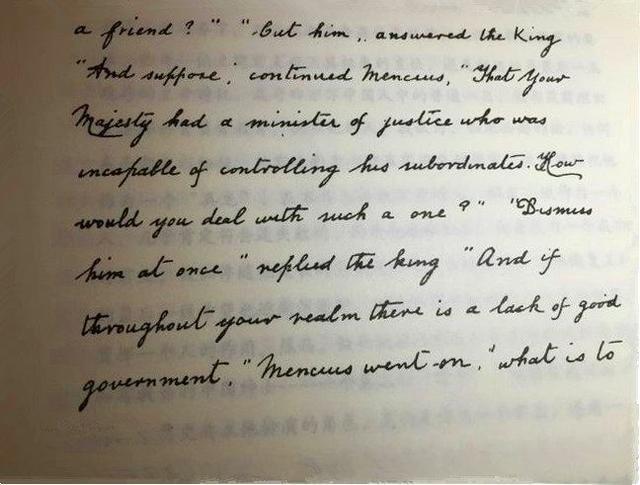 a friend?" "Cut him," answered the King
"And suppose," continued Mencius, "That Your
Majesty had a minister of justice who was
incapable of controlling his subordinates. How
would you deal with such a one?" "Dismiss
him at once" replied the king "And if
throughout your realm there is a lack of good
government," Mencius went on, "what is to